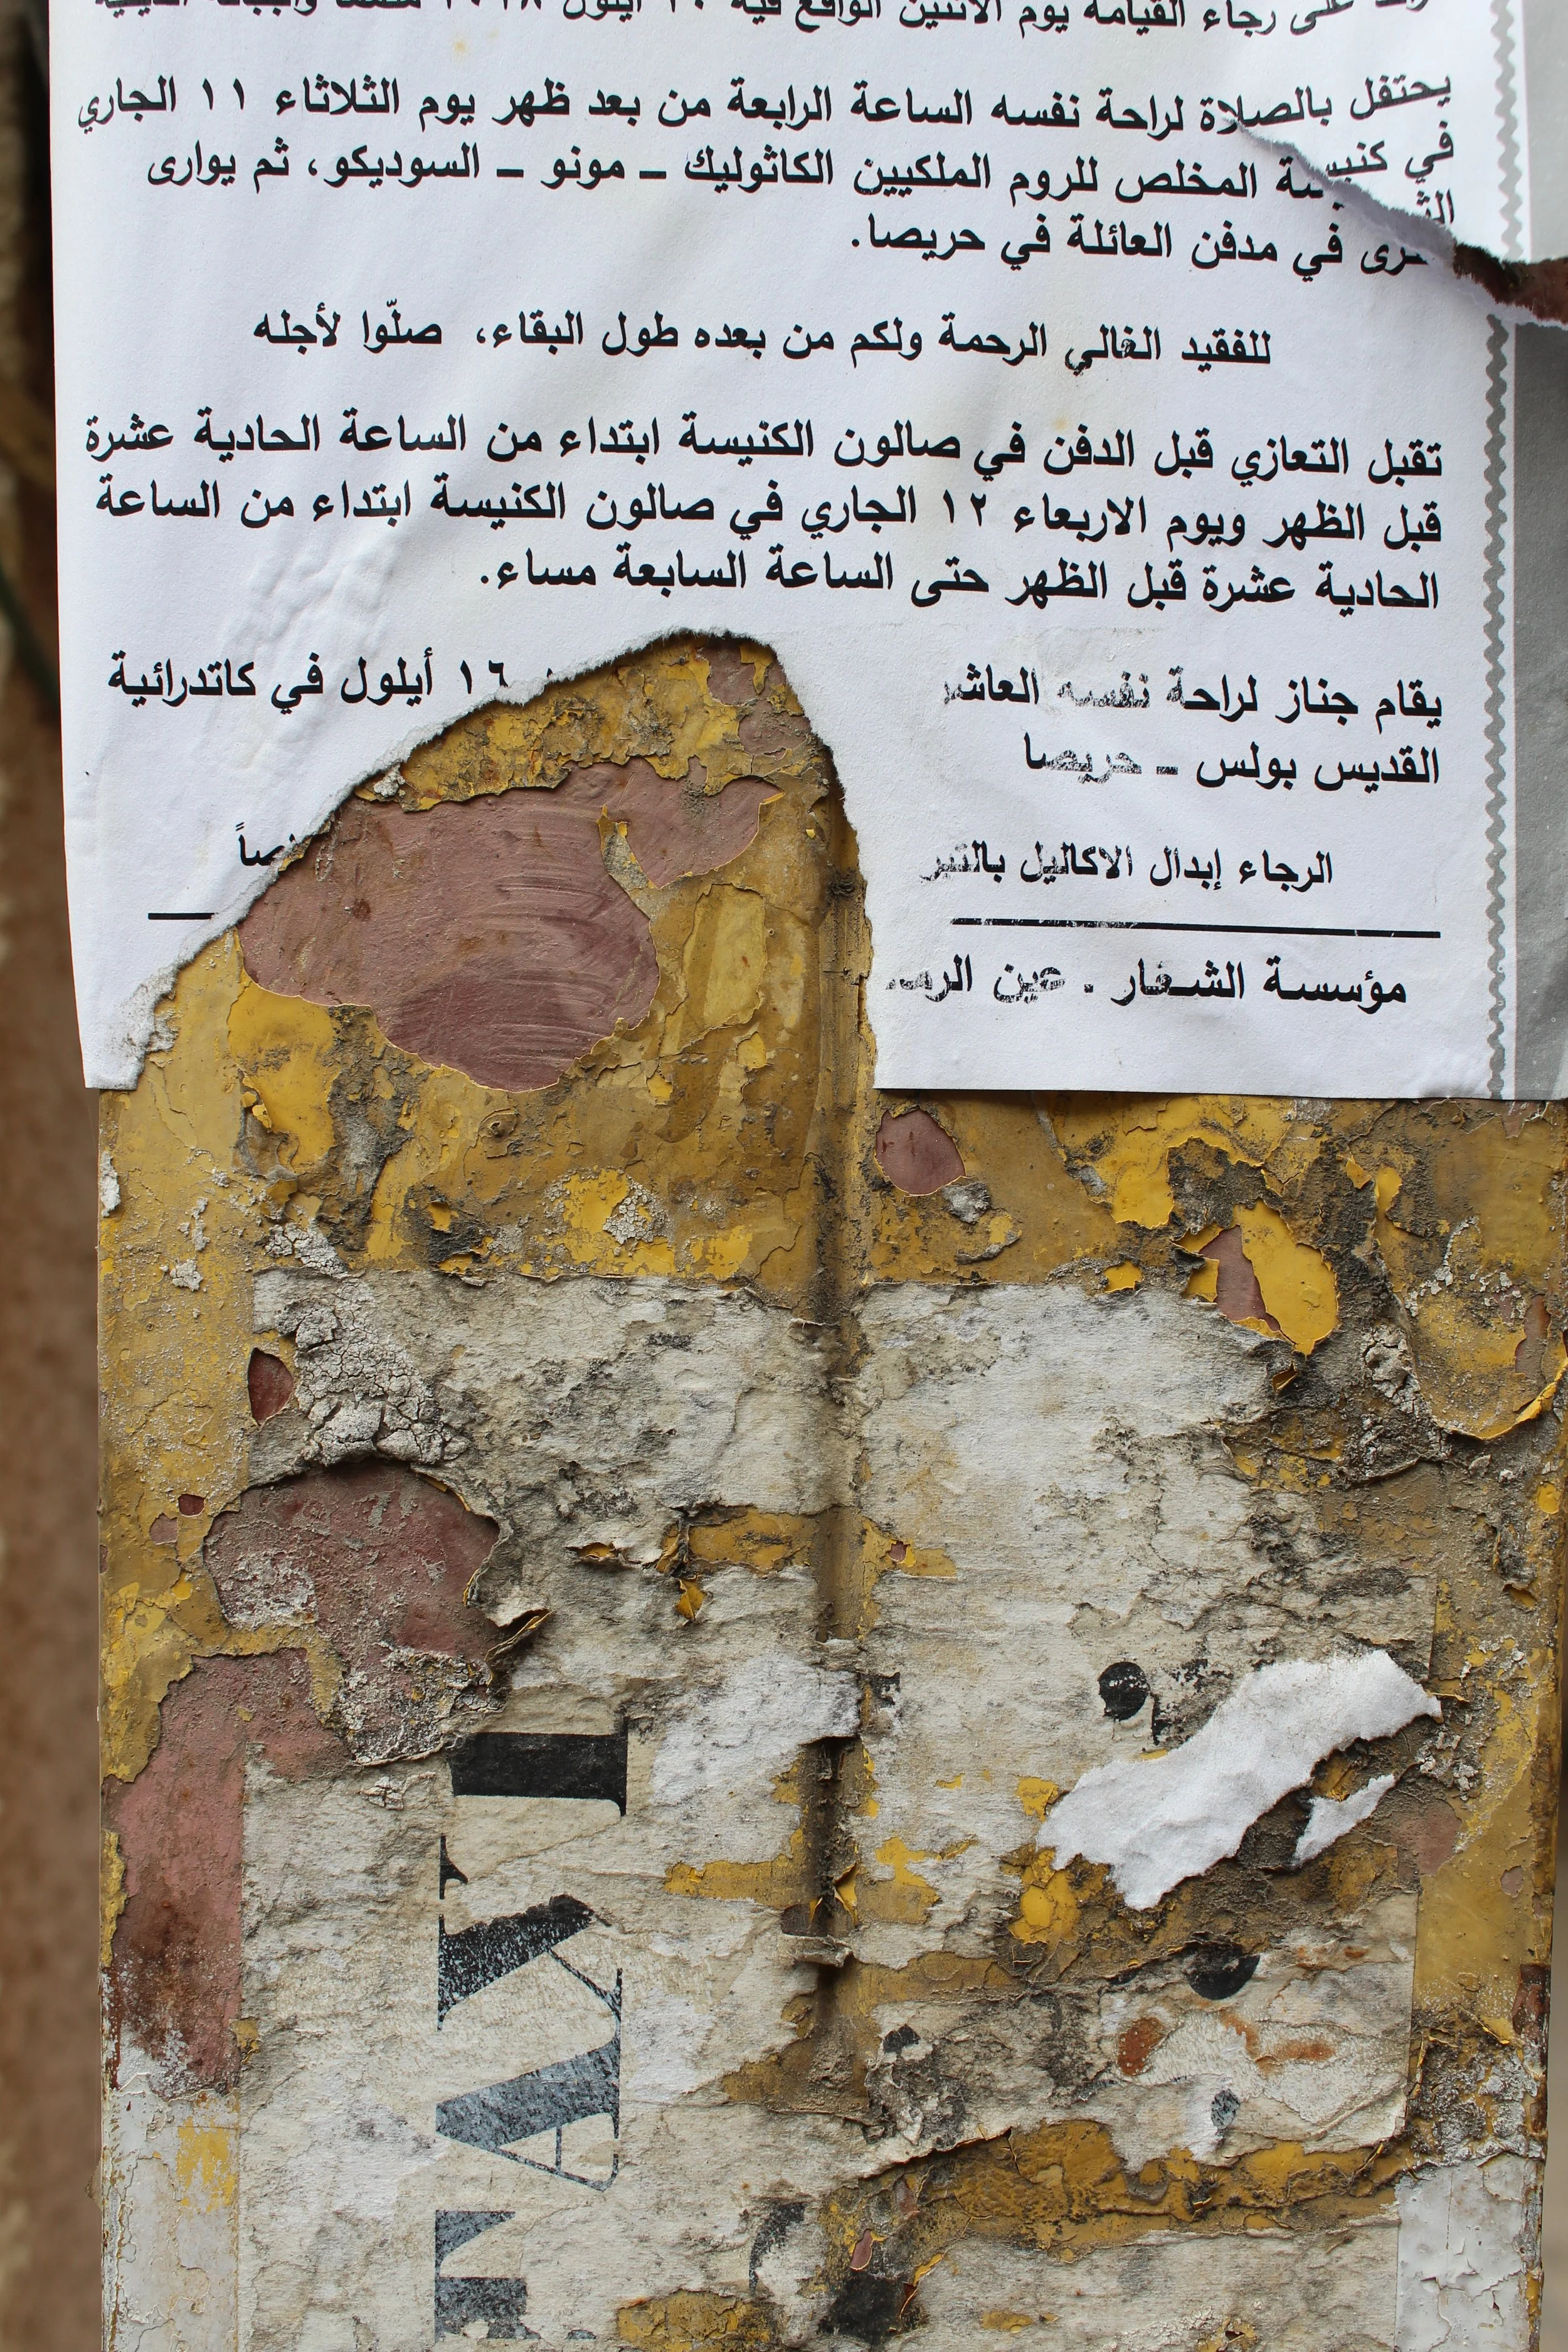 على رجاء القيامة يوم الاثنين الواقع فيه ١٠ أيلول ٢٠١٨
يحتفل بالصلاة لراحة نفسه الساعة الرابعة من بعد ظهر يوم الثلاثاء ١١ الجاري
في كنيسة المخلص للروم الملكيين الكاثوليك ـ مونو ـ السوديكو، ثم يوارى
الثرى في مدفن العائلة في حريصا.
للفقيد الغالي الرحمة ولكم من بعده طول البقاء، صلّوا لأجله
تقبل التعازي قبل الدفن في صالون الكنيسة ابتداء من الساعة الحادية عشرة
قبل الظهر ويوم الاربعاء ١٢ الجاري في صالون الكنيسة ابتداء من الساعة
الحادية عشرة قبل الظهر حتى الساعة السابعة مساء.
يقام جناز لراحة نفسه العاشر ١٦ أيلول في كاتدرائية
القديس بولس ـ حريصا
الرجاء إبدال الاكاليل
مؤسسة الشعار . عين
TAXI